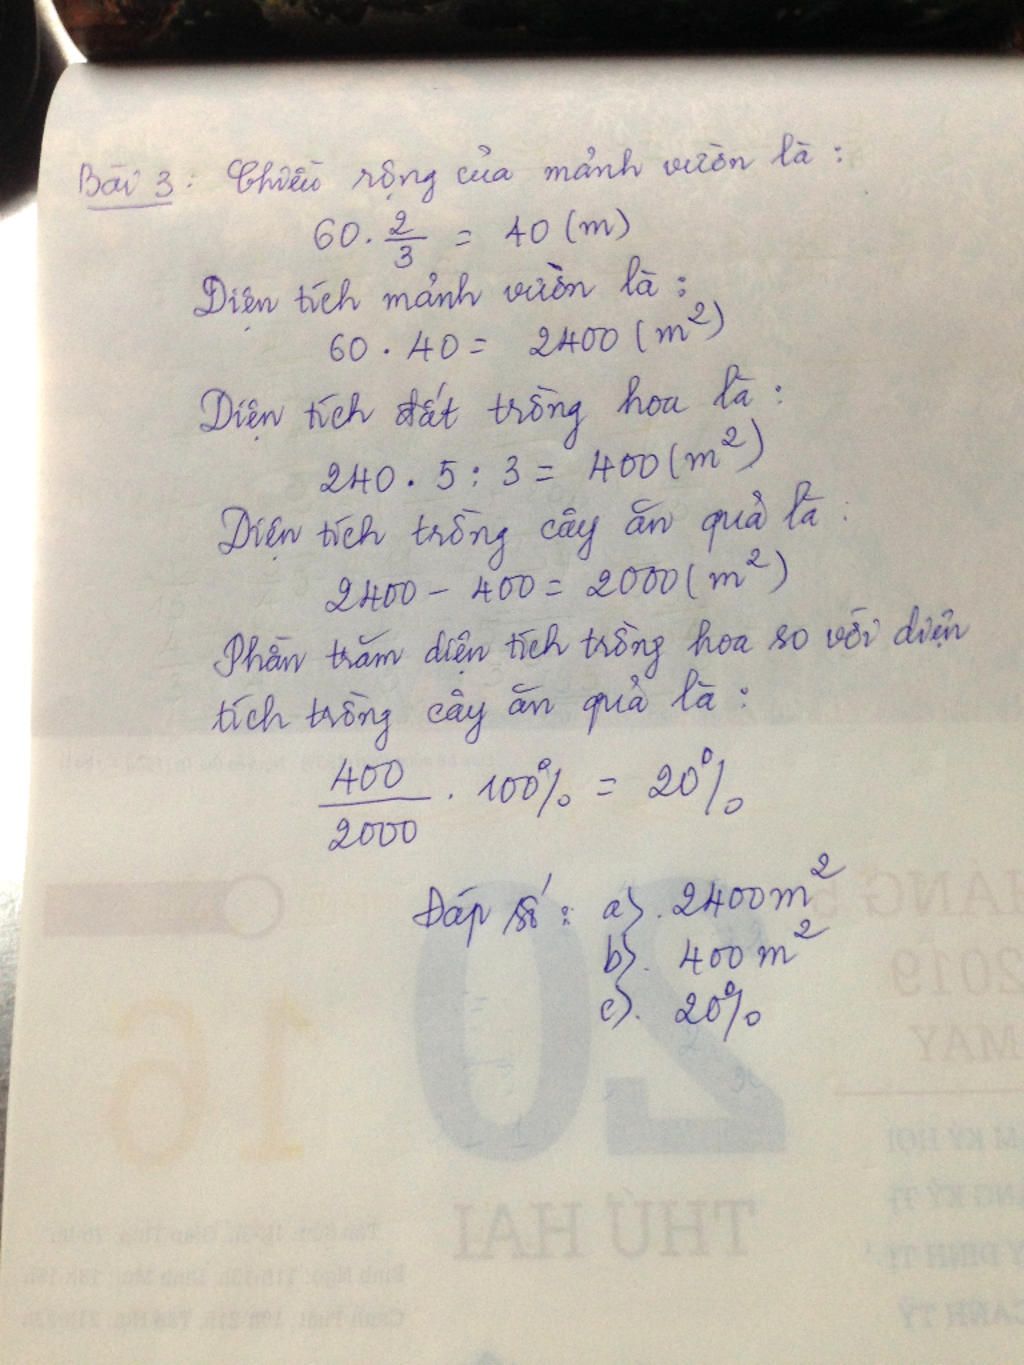 Bài 3: Chiều rộng của mảnh vườn là:
60 . 2/3 = 40 (m)
Diện tích mảnh vườn là:
60 . 40 = 2400 (m²)
Diện tích đất trồng hoa là:
240 . 5 : 3 = 400 (m²)
Diện tích trồng cây ăn quả là:
2400 - 400 = 2000 (m²)
Phần trăm diện tích trồng hoa so với diện
tích trồng cây ăn quả là:
400/2000 . 100% = 20%
Đáp số: a). 2400m²
b). 400 m²
c). 20%
20
16
THỨ HAI
THÁNG 5
2019
MAY